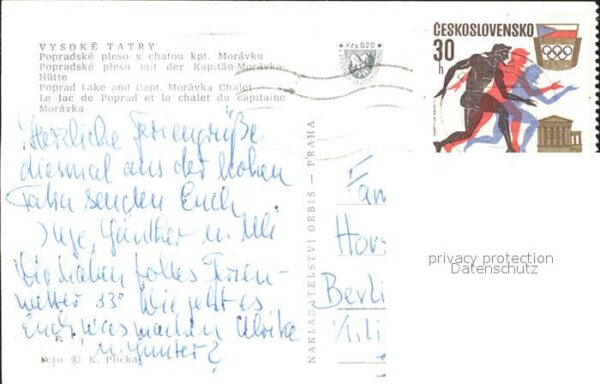 VYSOKÉ TATRY
Popradské pleso s chatou kpt. Morávku
Popradské pleso mit der Kapitän-Morávka-
Hütte
Poprad Lake and Capt. Morávka Chalet
Le lac de Poprad et le chalet du capitaine
Morávka
Kčs 0,20
ČESKOSLOVENSKO
30
h
Herzliche Feriengrüße
diesmal aus der hohen
Tatra senden Euch
Inge, Günther u. Uli
Wir haben tolles Ferien-
wetter 33° Wie geht es
Euch, was machen Ulrike
u. Gunter?
Foto © K. Plicka
NAKLADATELSTVÍ ORBIS - PRAHA
Fam
Hors
Berli
privacy protection
Datenschutz